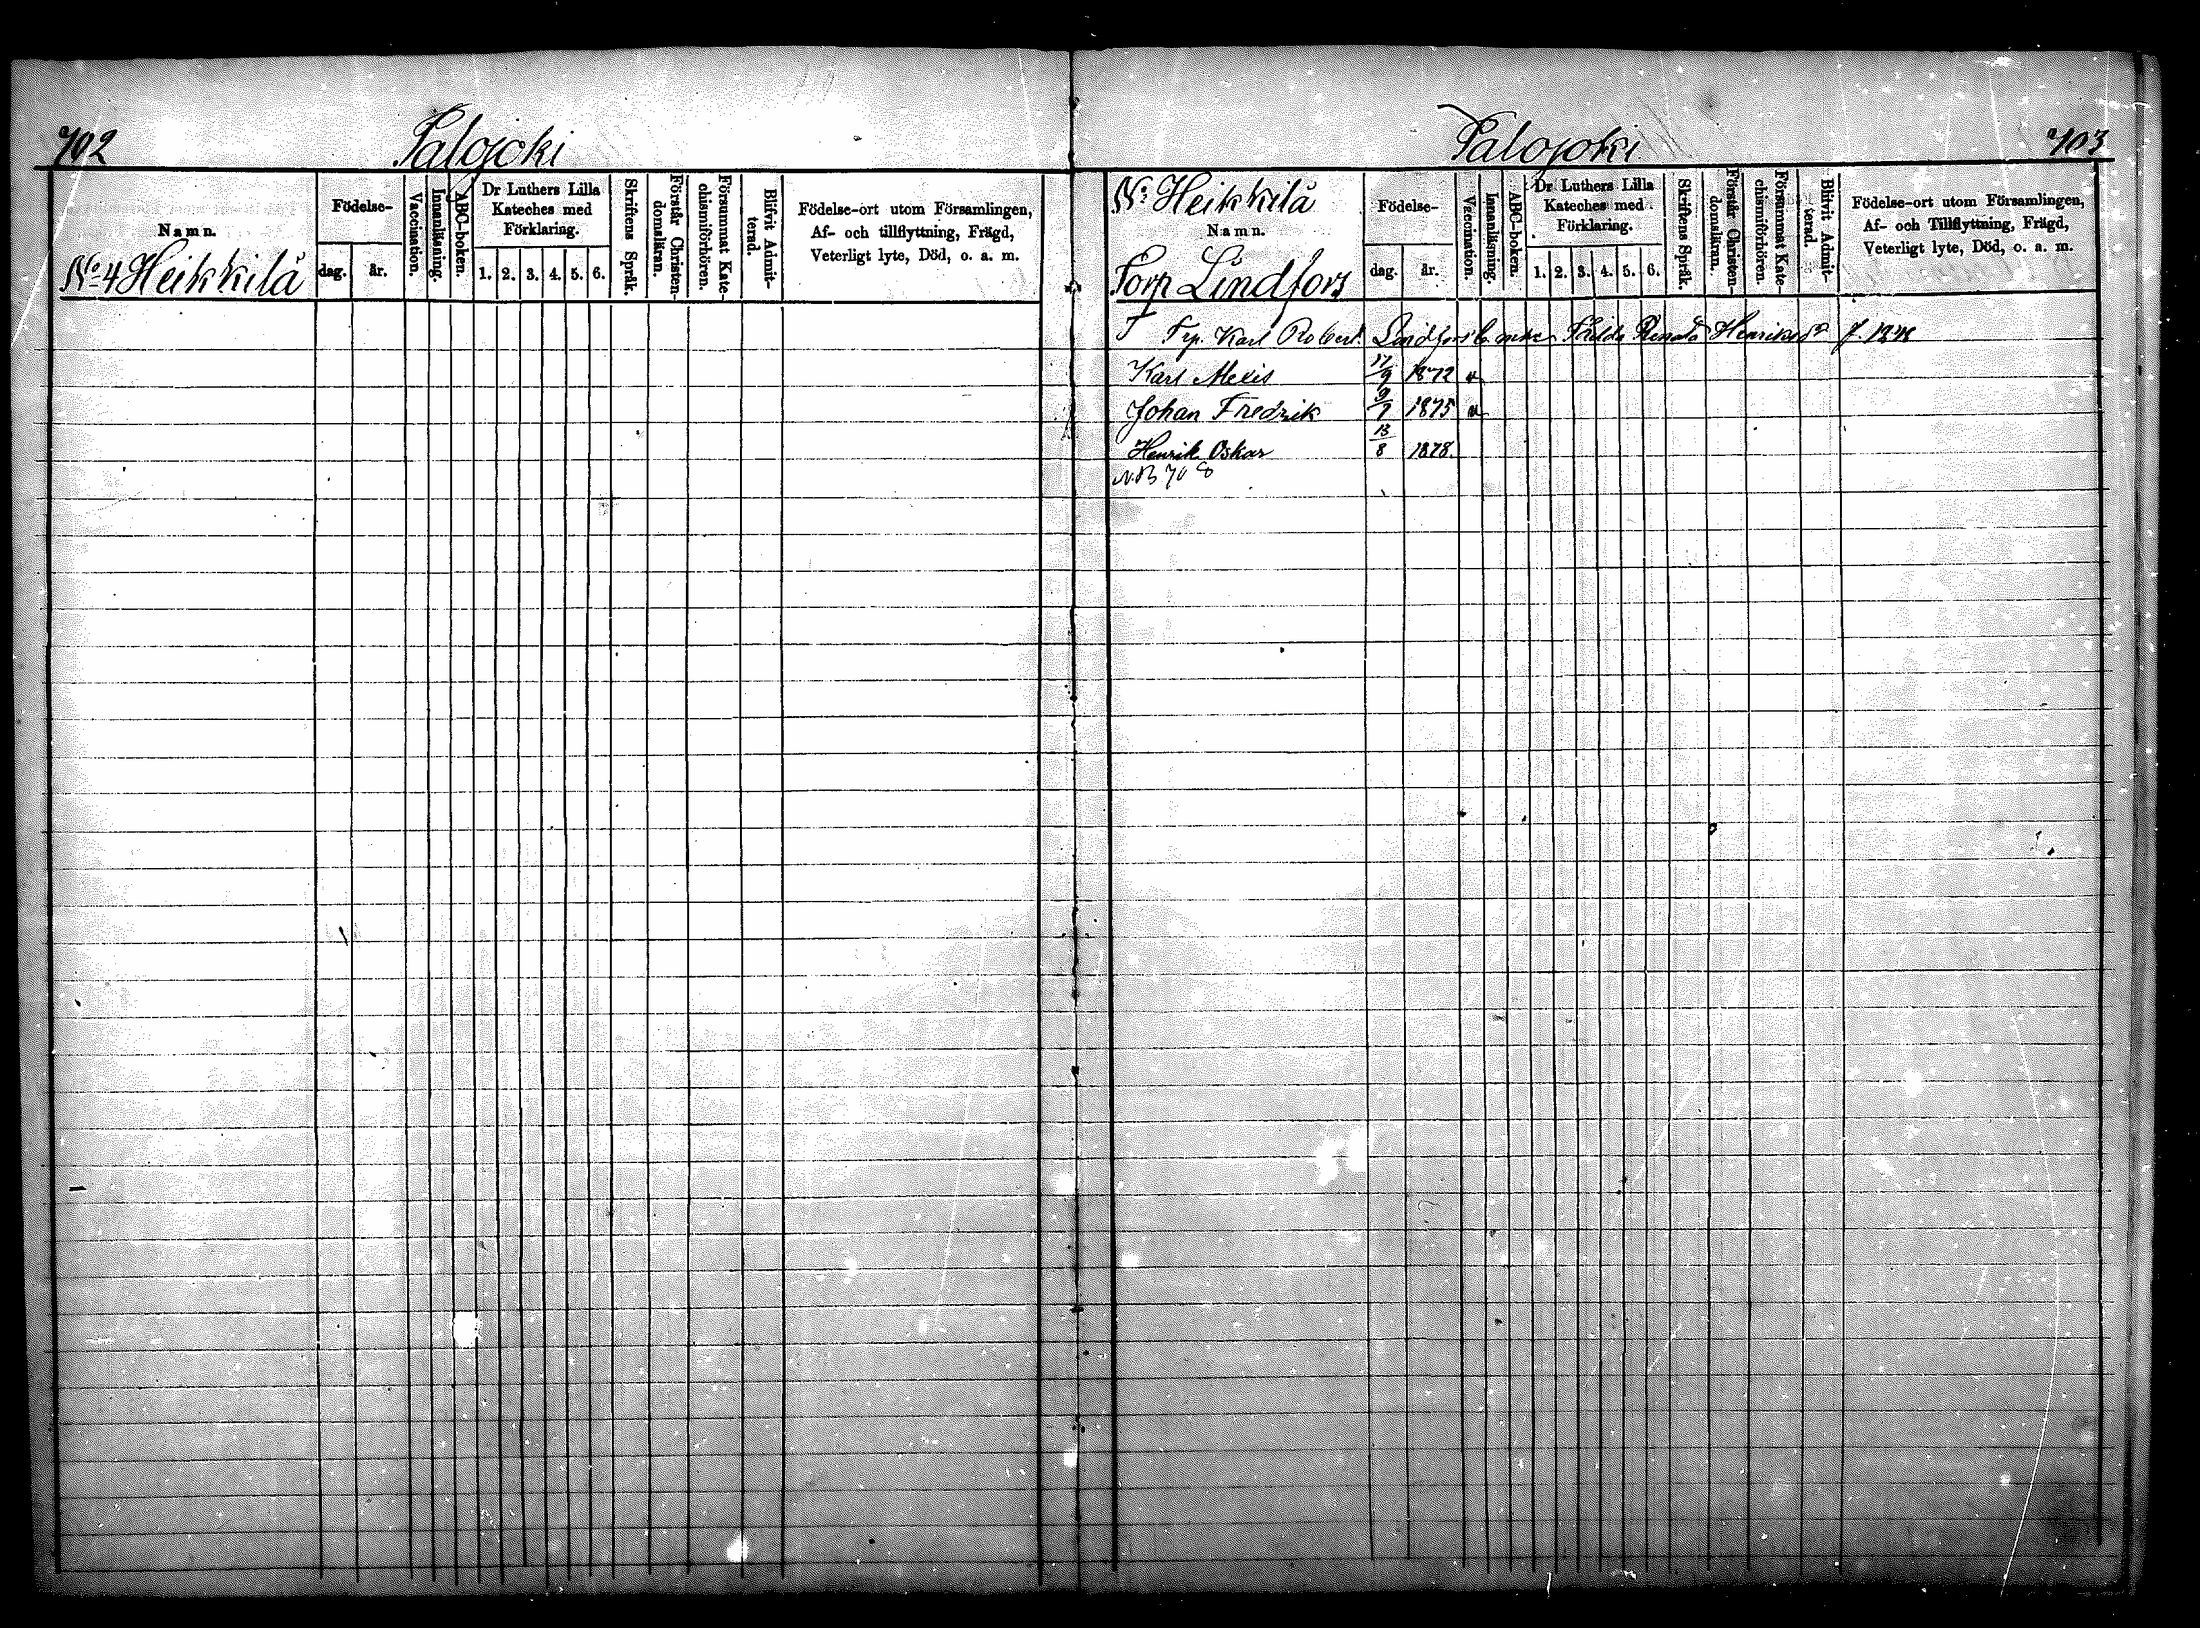 702
Palojoki
Namn.
No 4 Heikkilä
Födelse-
dag.
år.
Vaccination.
Innanläsning.
ABC-boken.
Dr Luthers Lilla
Kateches med
Förklaring.
1. 2. 3. 4. 5. 6.
Skriftens Språk.
Förstår Christen-
domsläran.
Försummat Kate-
chismiförhören.
Blifvit Admit-
terad.
Födelse-ort utom Församlingen,
Af- och tillflyttning, Frägd,
Veterligt lyte, Död, o. a. m.
Palojoki
703
No Heikkilä
Namn.
Torp Lindfors
Födelse-
dag.
år.
Vaccination.
Innanläsning.
ABC-boken.
Dr Luthers Lilla
Kateches med
Förklaring.
1. 2. 3. 4. 5. 6.
Skriftens Språk.
Förstår Christen-
domsläran.
Försummat Kate-
chismiförhören.
Blifvit Admit-
terad.
Födelse-ort utom Församlingen,
Af- och Tillflyttning, Frägd,
Veterligt lyte, Död, o. a. m.
Karl Robert Lindfors Renata
Karl Alexis 17/9 1872
Johan Fredrik 9/7 1875
Henrik Oskar 13/8 1878.